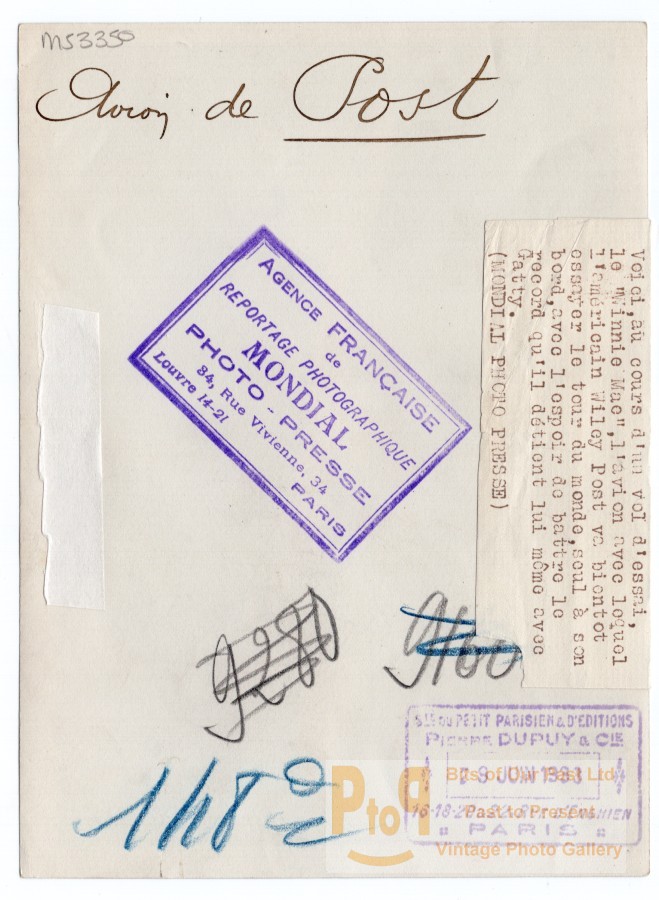 MS3350
Avion de Post
AGENCE FRANÇAISE
de
REPORTAGE PHOTOGRAPHIQUE
MONDIAL
PHOTO - PRESSE
34, Rue Vivienne, 34
Louvre 14-21
PARIS
Voici,au cours d'un vol d'essai,
le "Winnie Mae",l'avion avec lequel
l'américain Wiley Post va bientot
essayer le tour du monde,seul à son
bord,avec l'espoir de battre le
record qu'il détient lui même avec
Gatty.
(MONDIAL PHOTO PRESSE)
9280
9160
148
Sté DU PETIT PARISIEN & D'EDITIONS
PIERRE DUPUY & CIE
JUIN 1933
PARIS
PtoP
Bits of Our Past Ltd
Past to Present
Vintage Photo Gallery